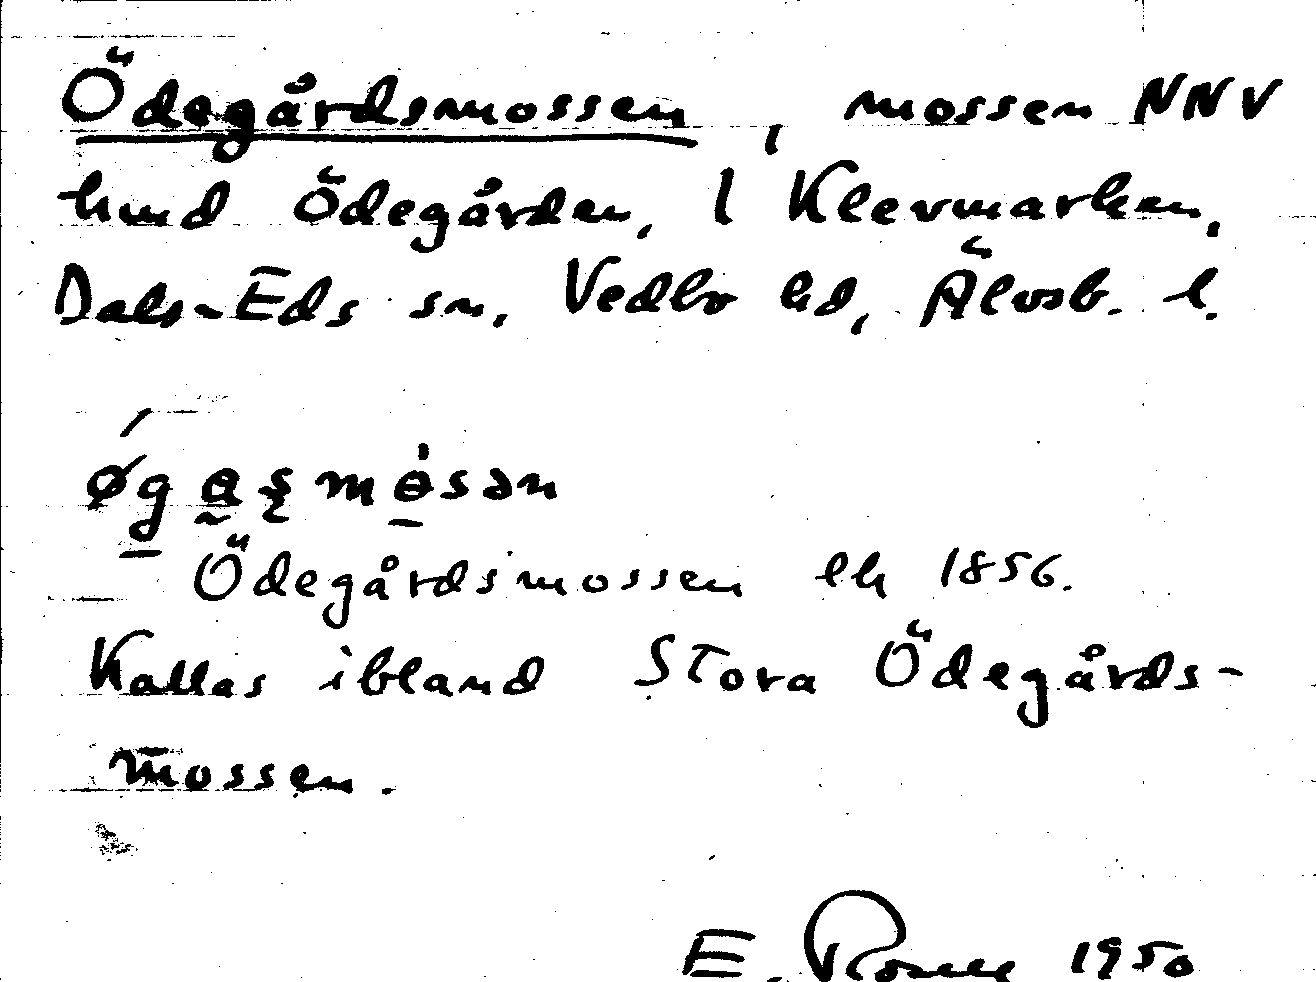 Ödegårdsmossen, mossen NNV
hmd Ödegården, 1 Klevmarken,
Dals-Eds sn, Vedbo hd, Älvsb. l.
Ödegårdsmossen ek 1856.
Kallas ibland Stora Ödegårds-
mossen.
E. 1950